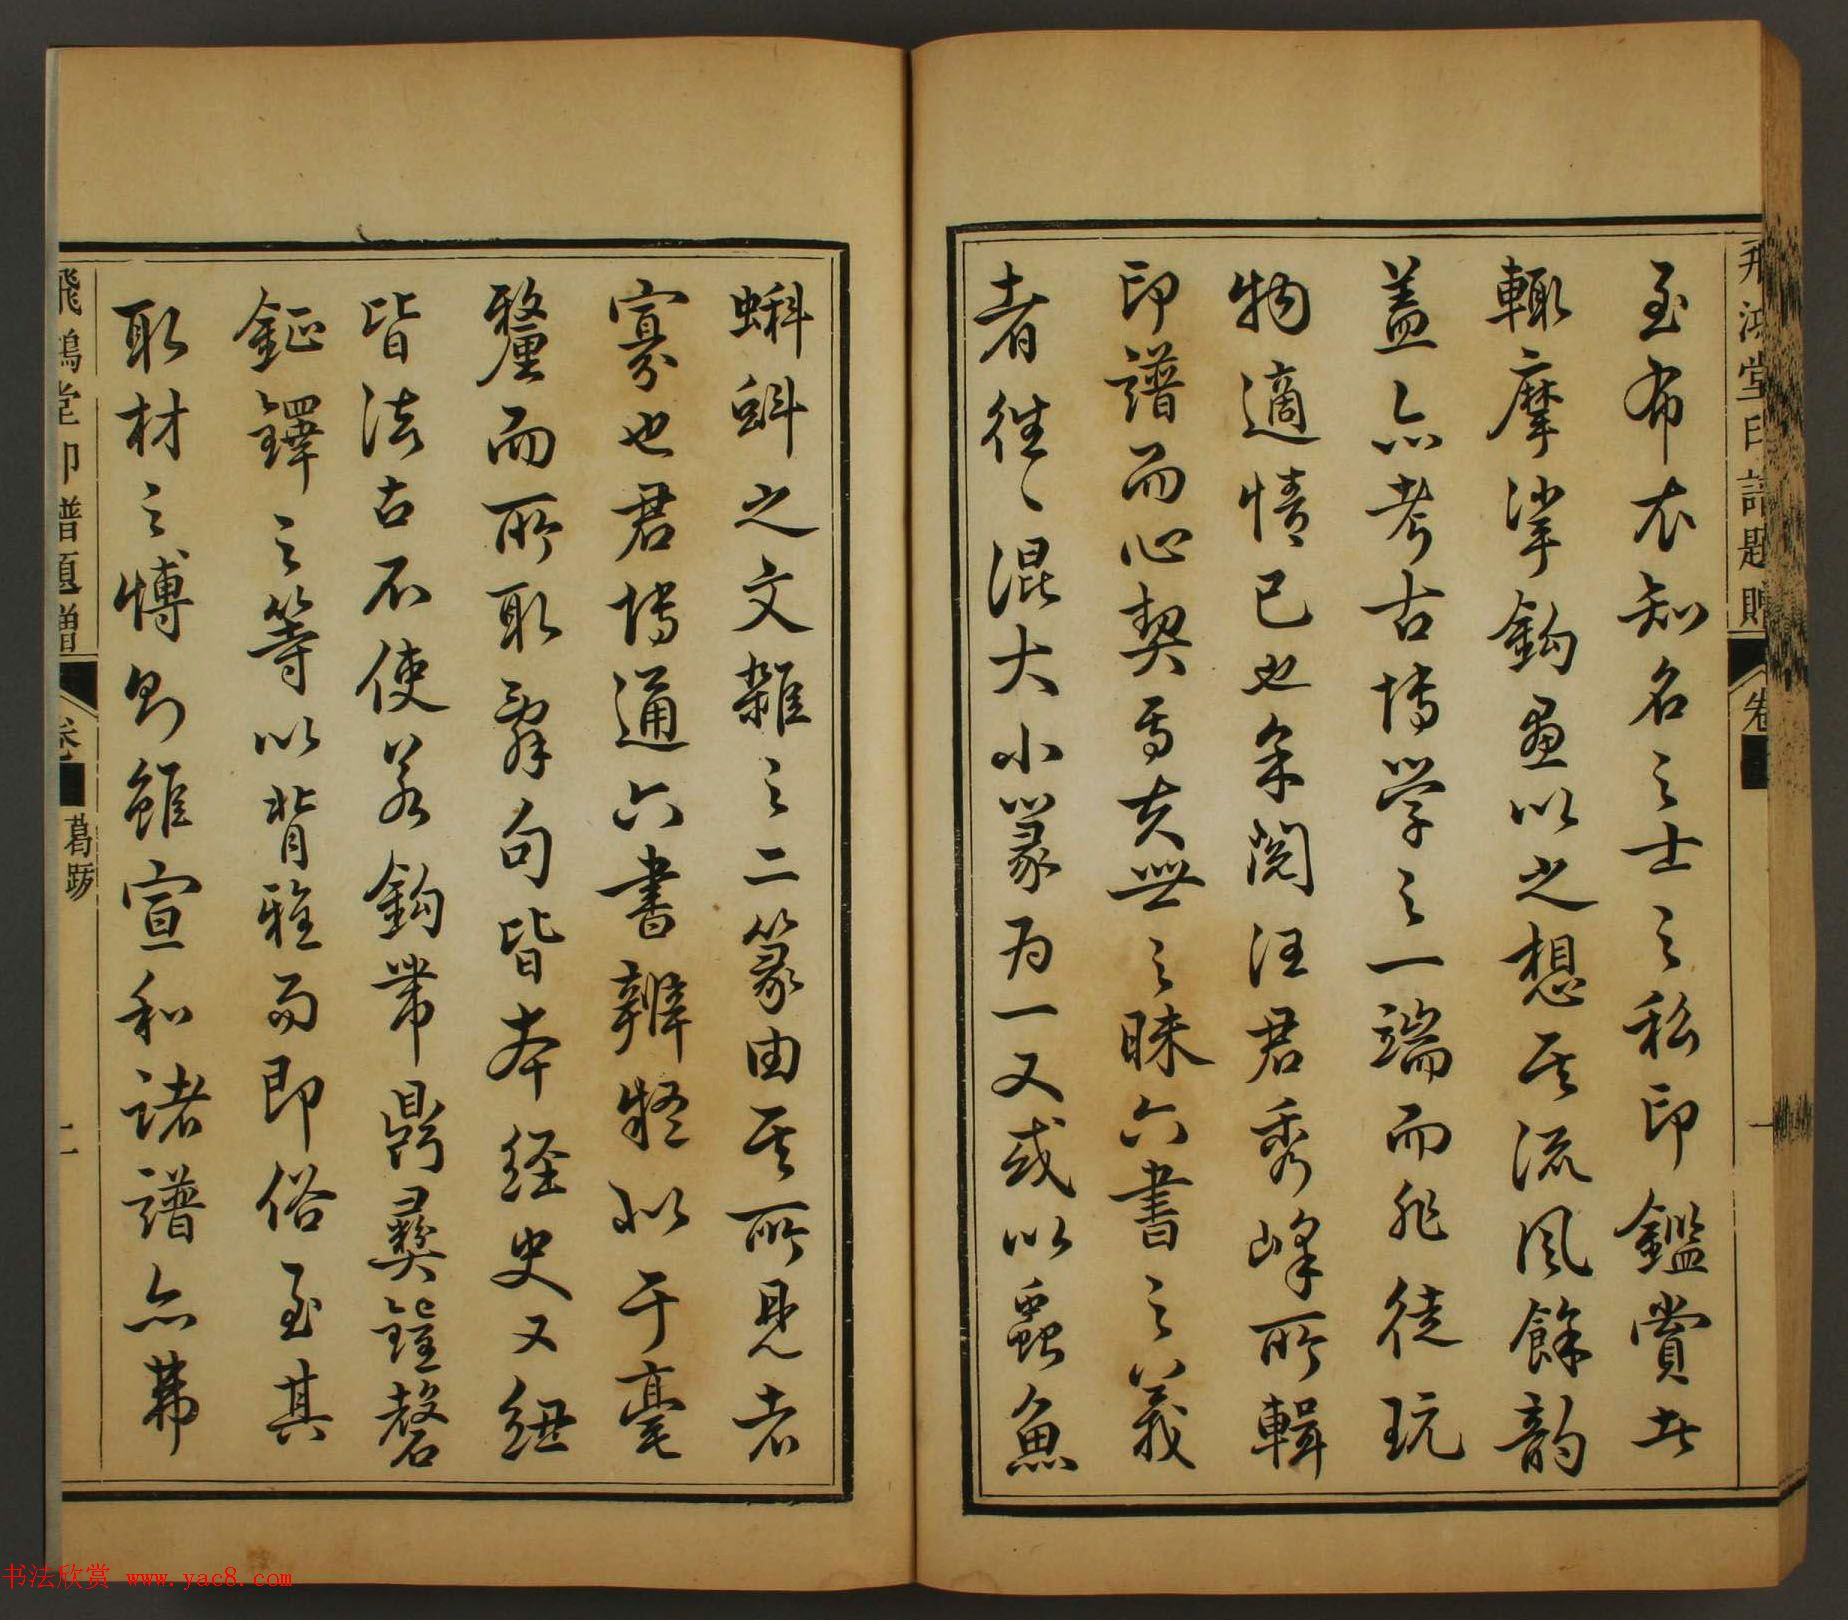 飛鴻堂印譜題贈 卷 一
至布衣知名之士之私印鑑賞者
輒摩挲鉤畫以之想其流風餘韵
蓋亦考古博學之一端而非徒玩
物適情已也余閱汪君秀峰所輯
印譜而心契焉夫世之昧六書之義
者往〻混大小篆為一又或以蟲魚
蝌蚪之文雜之二篆由其所見者
寡也君博通六書辨疑似于毫
釐而所取辭句皆本經史又紐
皆法古不使若鉤帶鼎彝鐘磬
鉦鐸之等以背雅而即俗至其
取材之博則雖宣和諸譜亦弗
飛鴻堂印譜題贈 卷 葛跋 二
书法欣赏 www.yac8.com